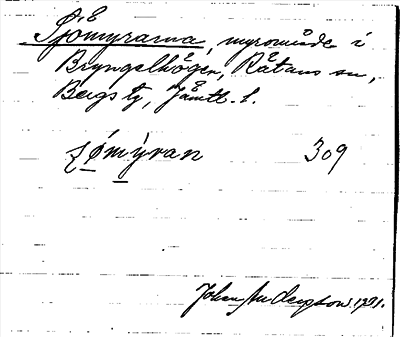 Sjömyrarna, myrområde i
Bryngelhögen, Rätans sn,
Bergs tg, Jämtl. l.
ʂömýran 309
Johan Anderson 1931.